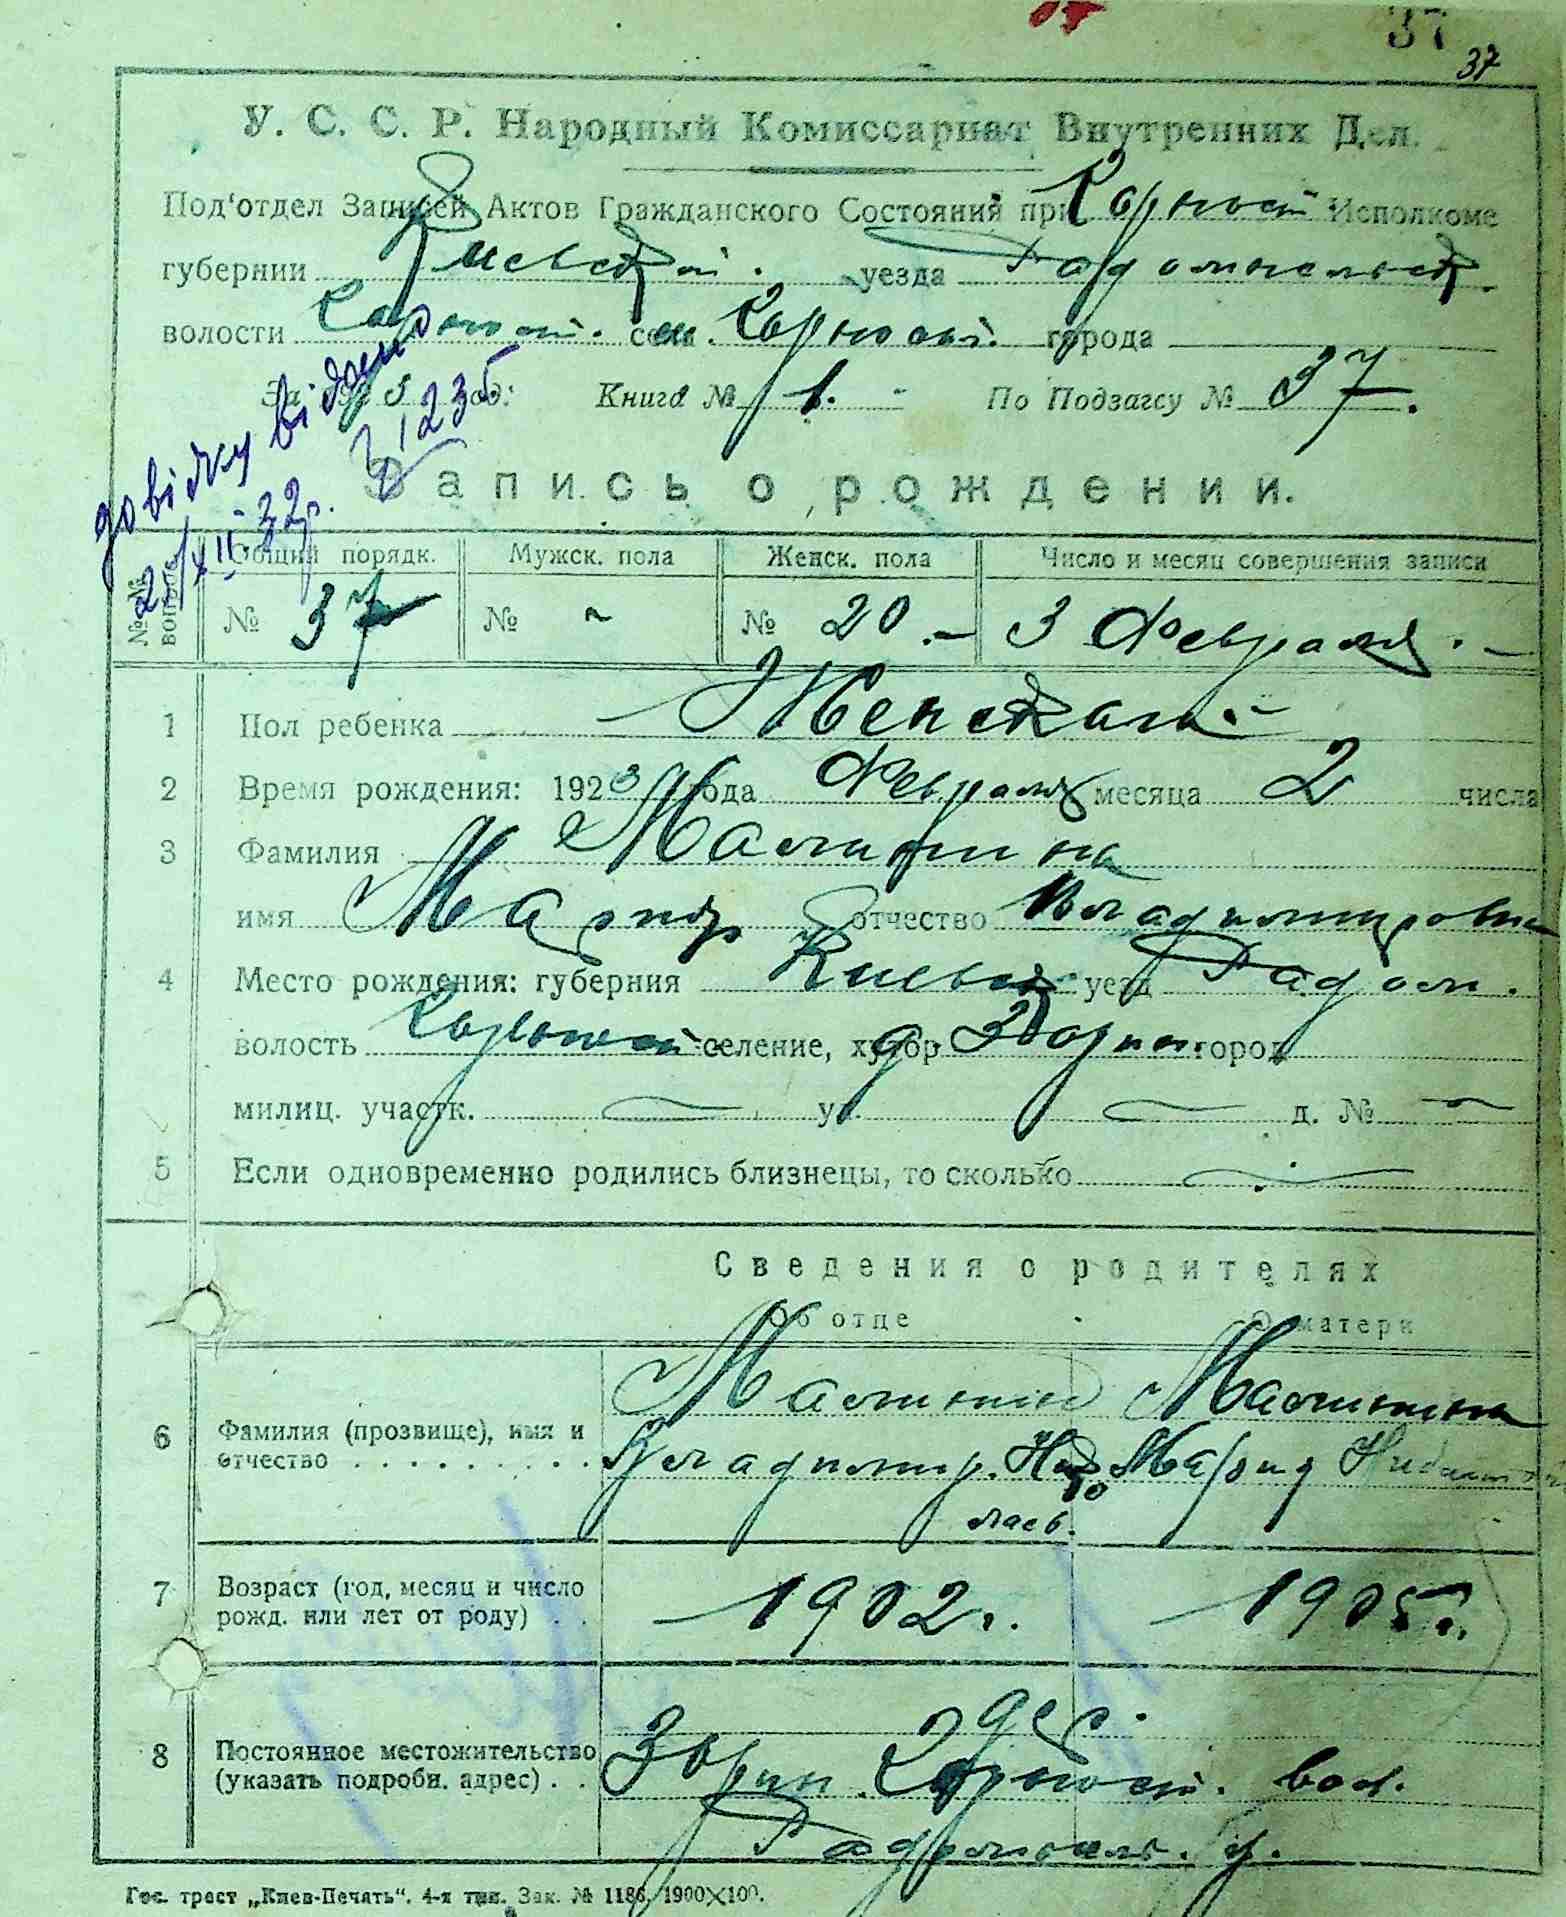 37
37
У. С. С. Р. Народный Комиссариат Внутренних Дел.
Под'отдел Записей Актов Гражданского Состояния при Исполкоме
губернии Киевской. уезда Радомысльск.
волости села города
За 1923 год: Книга № 1. - По Подзагсу № 37.
довідку відано
2/XII-32р. 3123б
Запись о рождении.
№№ вопросов Общий порядк. Мужск. пола Женск. пола Число и месяц совершения записи
№ 37 № ~ № 20.- 3 Февраля.-
1 Пол ребенка - Женский.-
2 Время рождения: 1923 года Февраля месяца 2 числа
3 Фамилия Малинина
имя отчество Владимировна
4 Место рождения: губерния Киевск. уезд Радом.
волость селение, хутор д. город
милиц. участк. — ул. — д. № —
5 Если одновременно родились близнецы, то сколько —
Сведения о родителях
Об отце О матери
6 Фамилия (прозвище), имя и отчество Малинин Малинина
Владимир. Нико Мария
лаев.
7 Возраст (год, месяц и число рожд. или лет от роду) . . - 1902г. - 1905г.
8 Постоянное местожительство (указать подробн. адрес) . . дер.
вол.
Радомысль. у.
Гос. трест „Киев-Печать“. 4-я тип. Зак. № 1186. 1900×100.